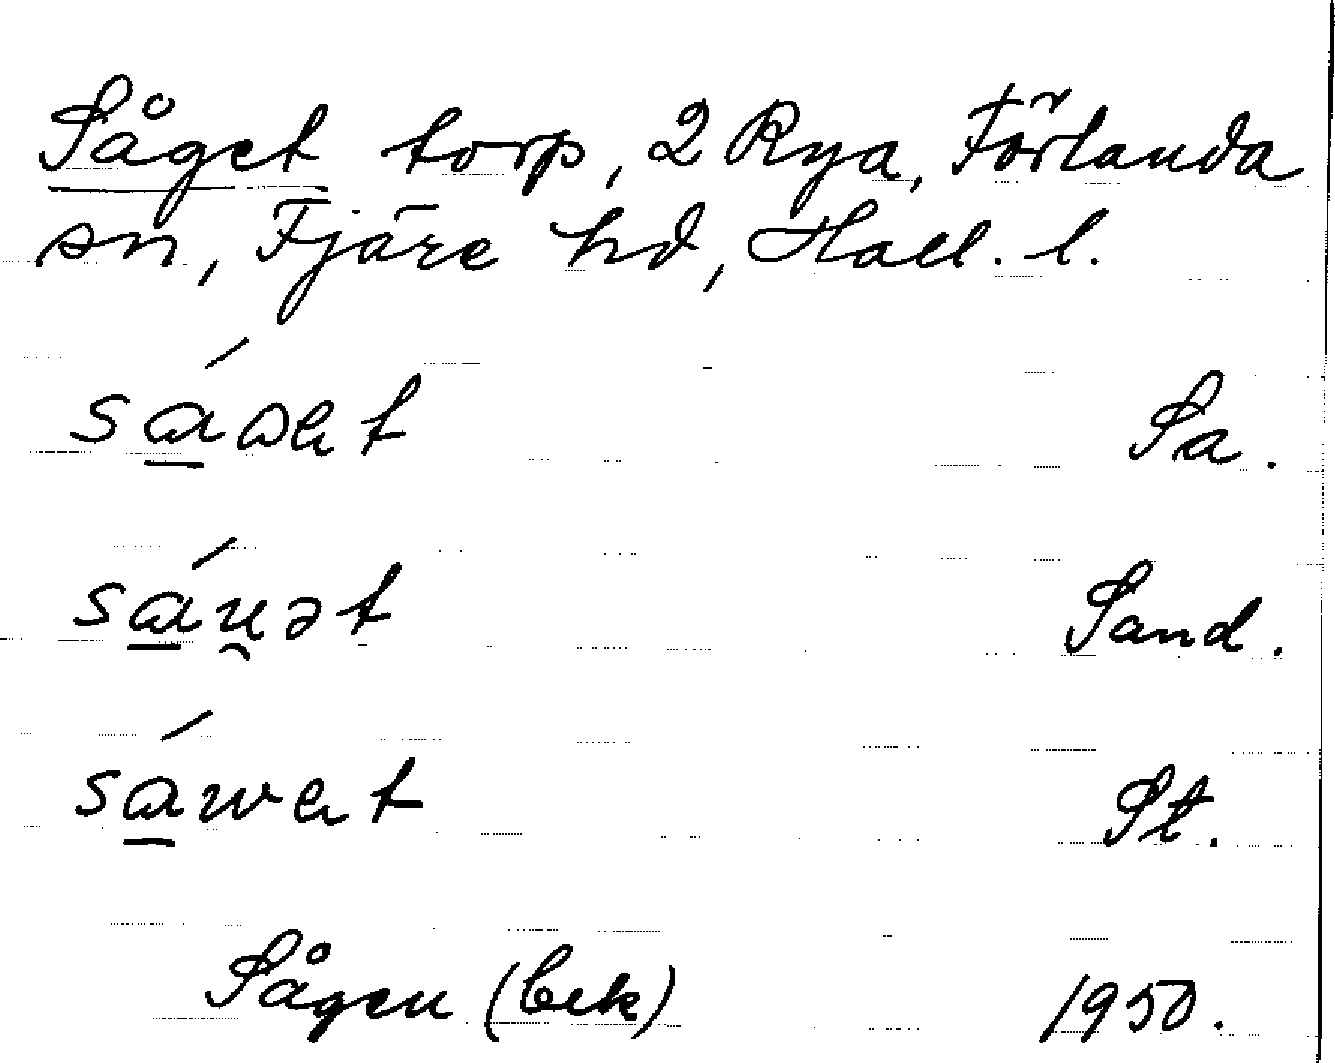 Såget torp, 2 Rya, Förlanda
sn, Fjäre hd, Hall. l.
Sa.
sáu̯ət Sand.
St.
Sågen (bek) 1950.